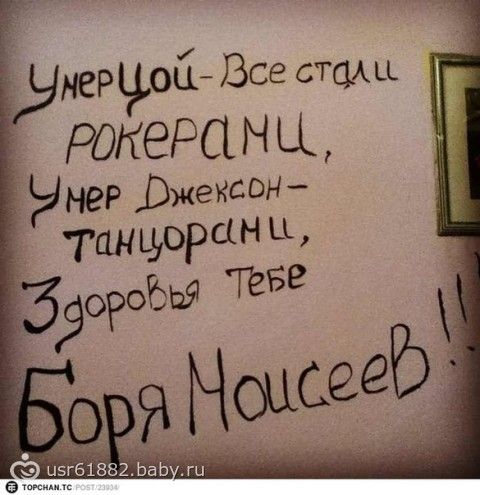 Умер Цой - Все стали
рокерами,
Умер Джексон -
танцорами,
Здоровья Тебе
Боря Моисеев!!
usr61882.baby.ru
TOPCHAN.TC/POST/23934/